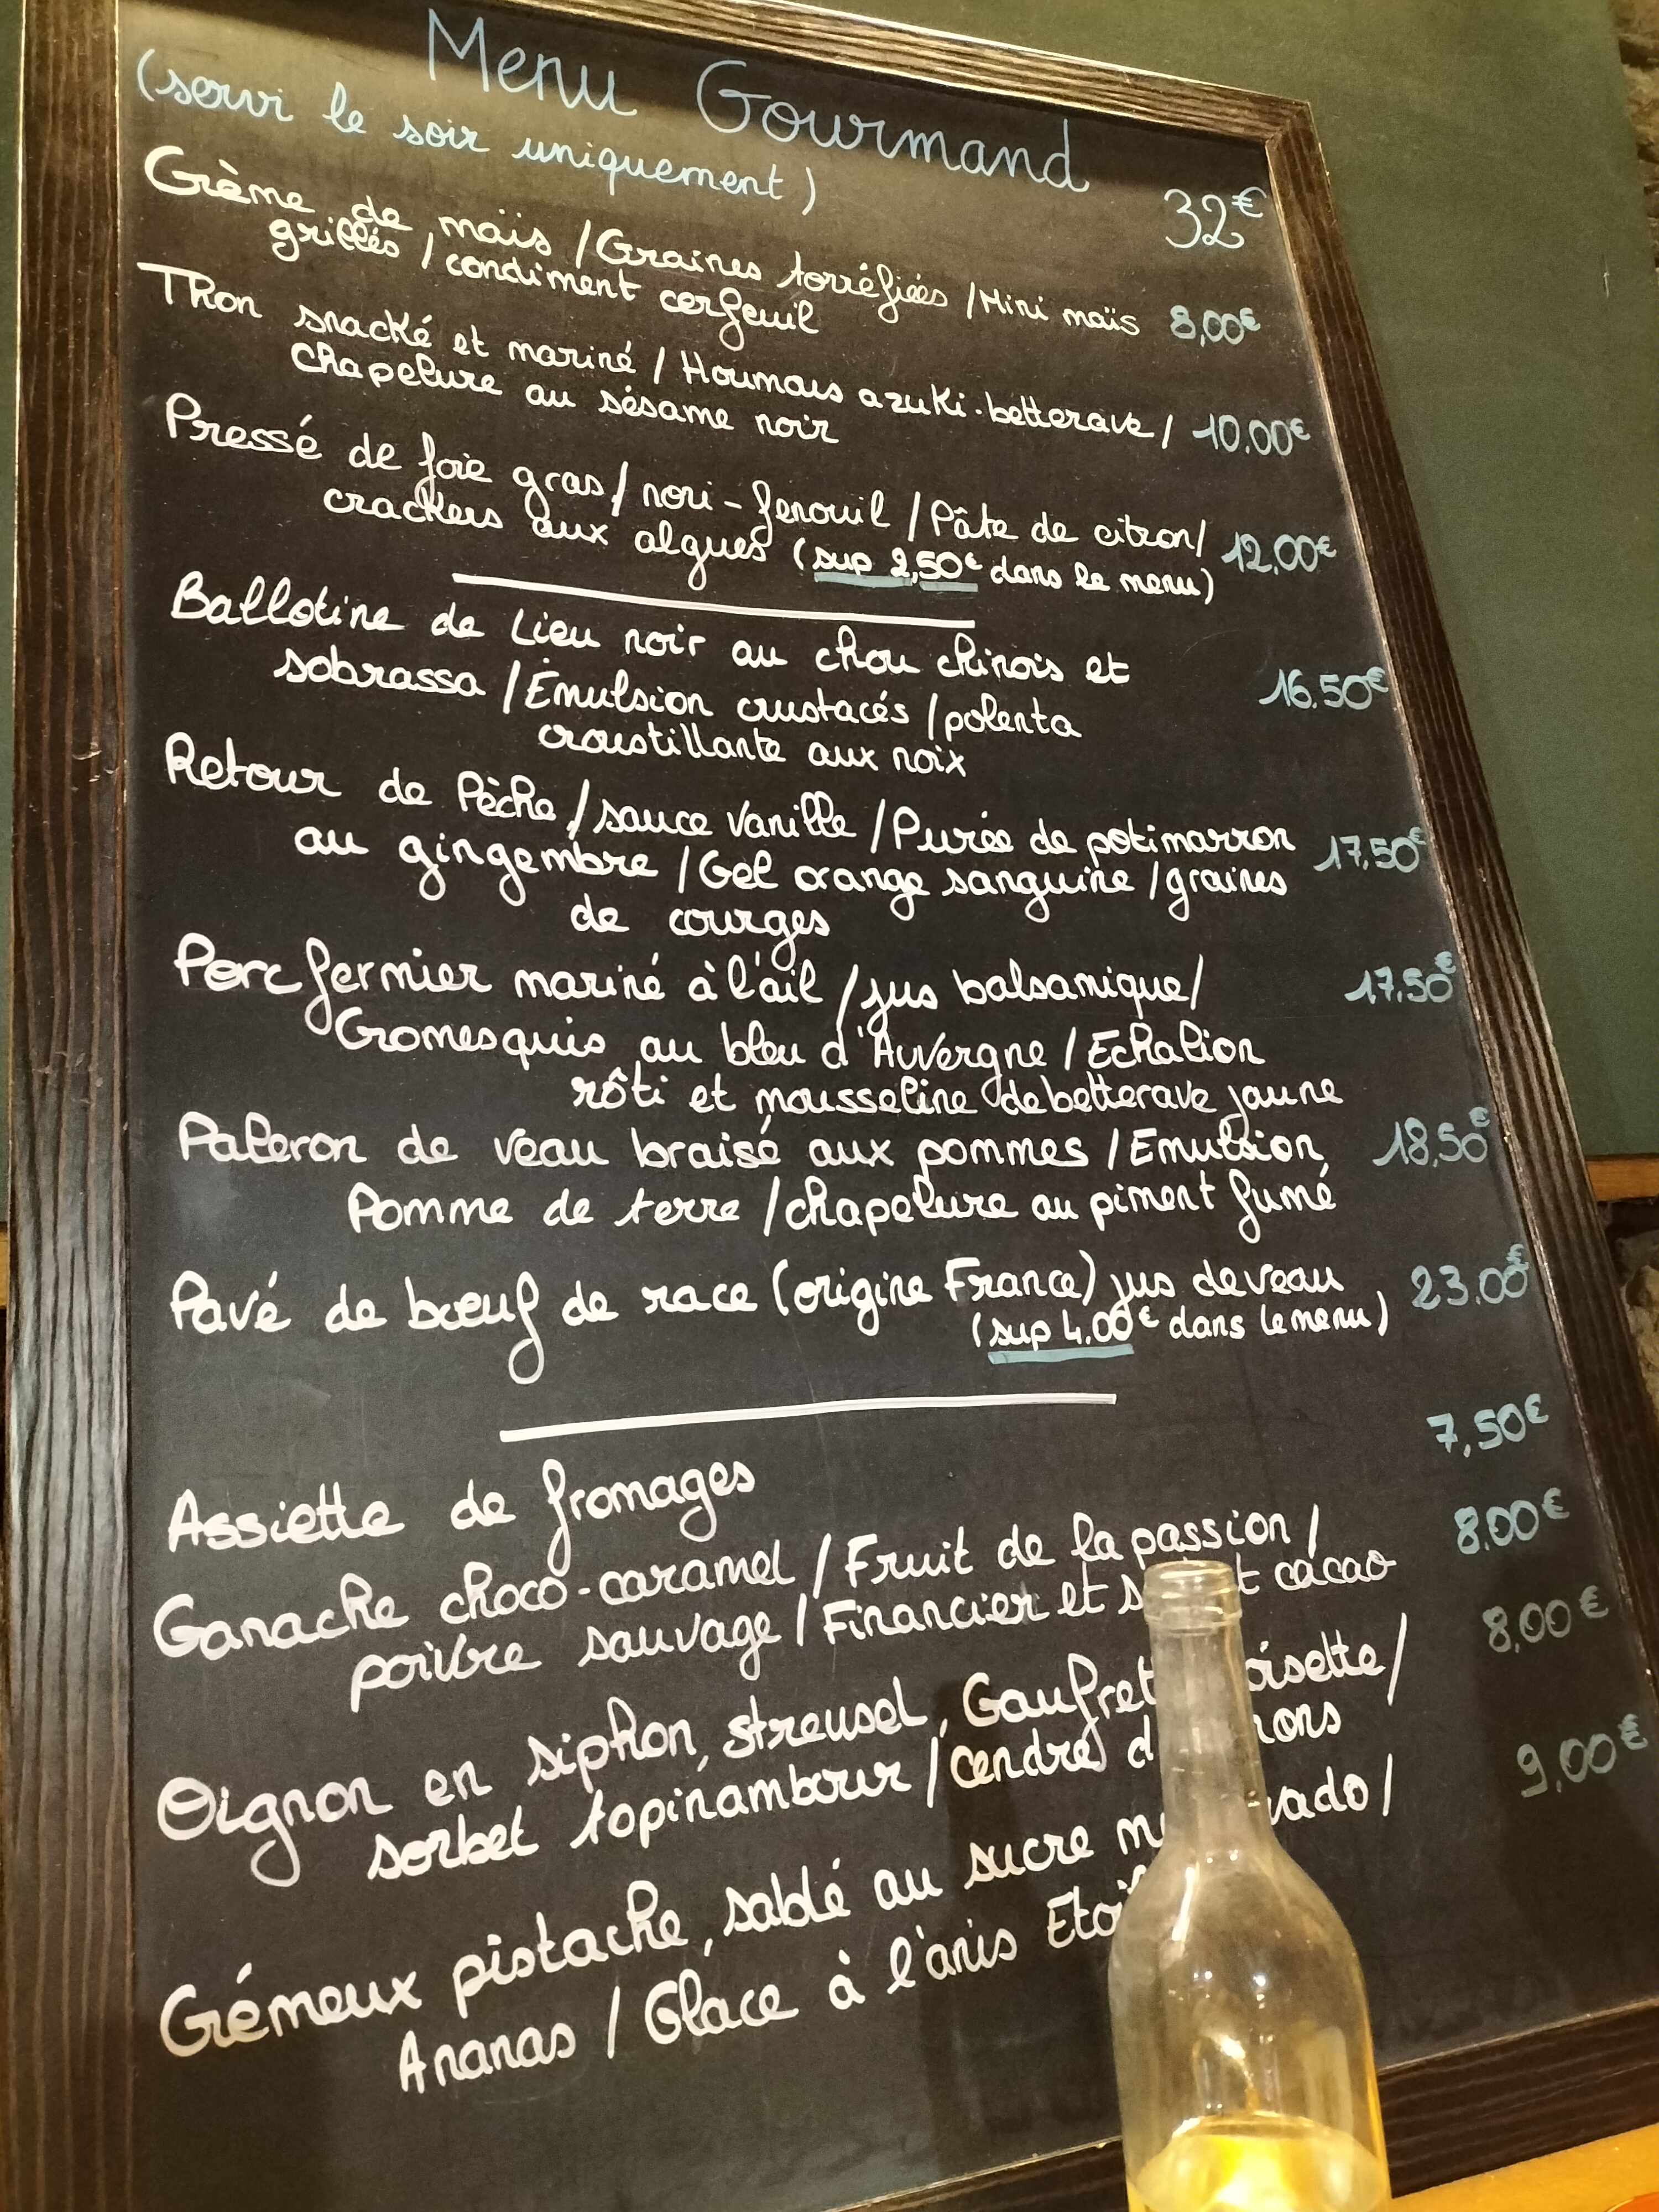 Menu Gourmand
(servi le soir uniquement)
32€
Crème de maïs / Graines torréfiées / Mini maïs 8,00€
grillés / condiment cerfeuil
Thon snacké et mariné / Houmous azuki-betterave / 10.00€
chapelure au sésame noir
Pressé de foie gras / nori-fenouil / Pâte de citron / 12.00€
crackers aux algues (sup 2,50€ dans le menu)
Ballotine de Lieu noir au chou chinois et
sobrassa / Émulsion crustacés / polenta 16.50€
croustillante aux noix
Retour de Pêche / sauce Vanille / Purée de potimarron 17.50€
au gingembre / Gel orange sanguine / graines
de courges
Porc fermier mariné à l'ail / jus balsamique / 17.50€
Cromesquis au bleu d'Auvergne / Echalion
rôti et mousseline de betterave jaune
Paleron de veau braisé aux pommes / Emulsion 18,50€
Pomme de terre / chapelure au piment fumé
Pavé de bœuf de race (origine France) jus de veau 23.00€
(sup 4.00€ dans le menu)
Assiette de fromages 7,50€
Ganache choco-caramel / Fruit de la passion / 8.00€
poivre sauvage / Financier et cacao
Oignon en siphon, streusel, 8,00€
sorbet topinambour / cendre
Crémeux pistache, sablé au sucre 9,00€
Ananas / Glace à l'anis